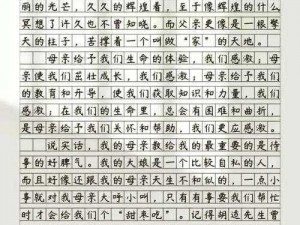 丽的光芒，许久的辉煌着，至于像辉煌的什么
冥想了许久也不曾知晓。而父亲更像是一根擎
天的柱子，苦撑着一个叫做“家”的天地。
母亲给予我们生命的体验，我们感激；母亲
使我们茁壮成长，我们感激；母亲给予我们
的教育和开导，使我们获取知识和力量，我们
感激；在我们的生命里，总会有困难和曲折，
是母亲给予我们关怀和帮助，我们更应感激。
说实话，我的母亲教给我的最重要的是待
事的好脾气。我的大娘是一个比较自私的人，
而且好像还跟我的母亲天生不和似的，一点小
事就对我母亲大呼小叫，只有有事要我们帮忙
时才会给我们个“甜枣吃”。记得胡适先生曾